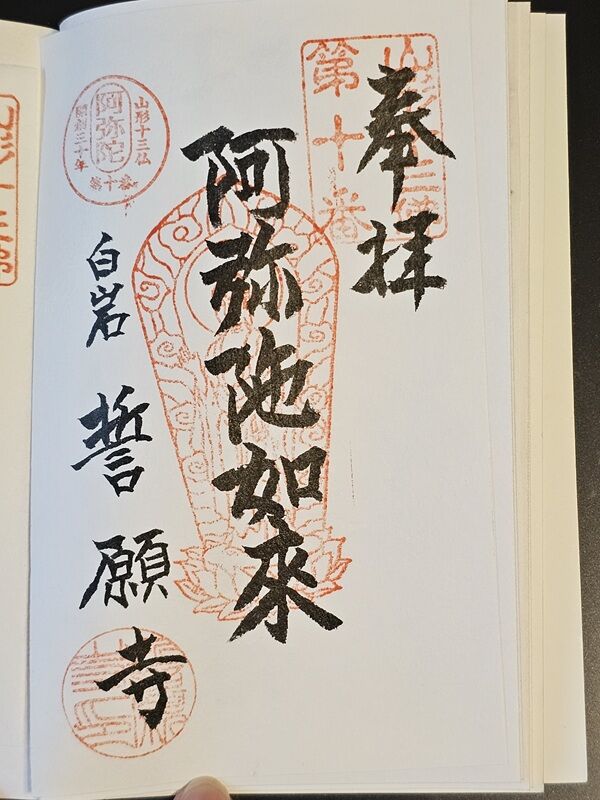 奉拝
山形十三佛
第十番
阿弥陀如來
山形十三仏
阿弥陀
開創三十年
第十番
白岩
誓願寺